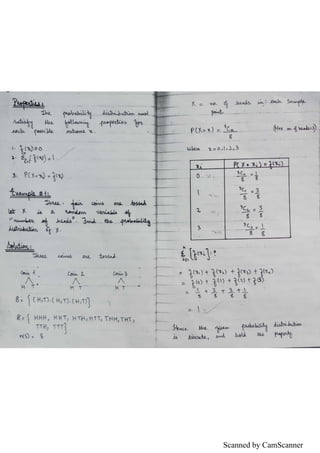 Properties:
The probability distribution must
satisfy the following properties for
each possible outcome x.
1. f(x) ≥ 0
2. Σ f(x) = 1
3. P(X=x) = f(x)
Example # 1:
Three fair coins are tossed
let X is a random variable of
"number of heads". Find the probability
distribution of X.
Solution:
Three coins are tossed.
Coin 1 Coin 2 Coin 3
H T H T H T
S = { (H,T) . (H,T) . (H,T) }
S = { HHH, HHT, HTH, HTT, THH, THT,
TTH, TTT }
n(S) = 8
X = no of heads in each sample
point
P(X=x) = 3Cx / 8
when x = 0, 1, 2, 3
xi P(X=xi) = f(xi)
0 3C0/8 = 1/8
1 3C1/8 = 3/8
2 3C2/8 = 3/8
3 3C3/8 = 1/8
= f(x1) + f(x2) + f(x3) + f(x4)
= f(0) + f(1) + f(2) + f(3)
= 1/8 + 3/8 + 3/8 + 1/8
= 1
Hence the given probability distribution
is discrete, and hold the property
Scanned by CamScanner